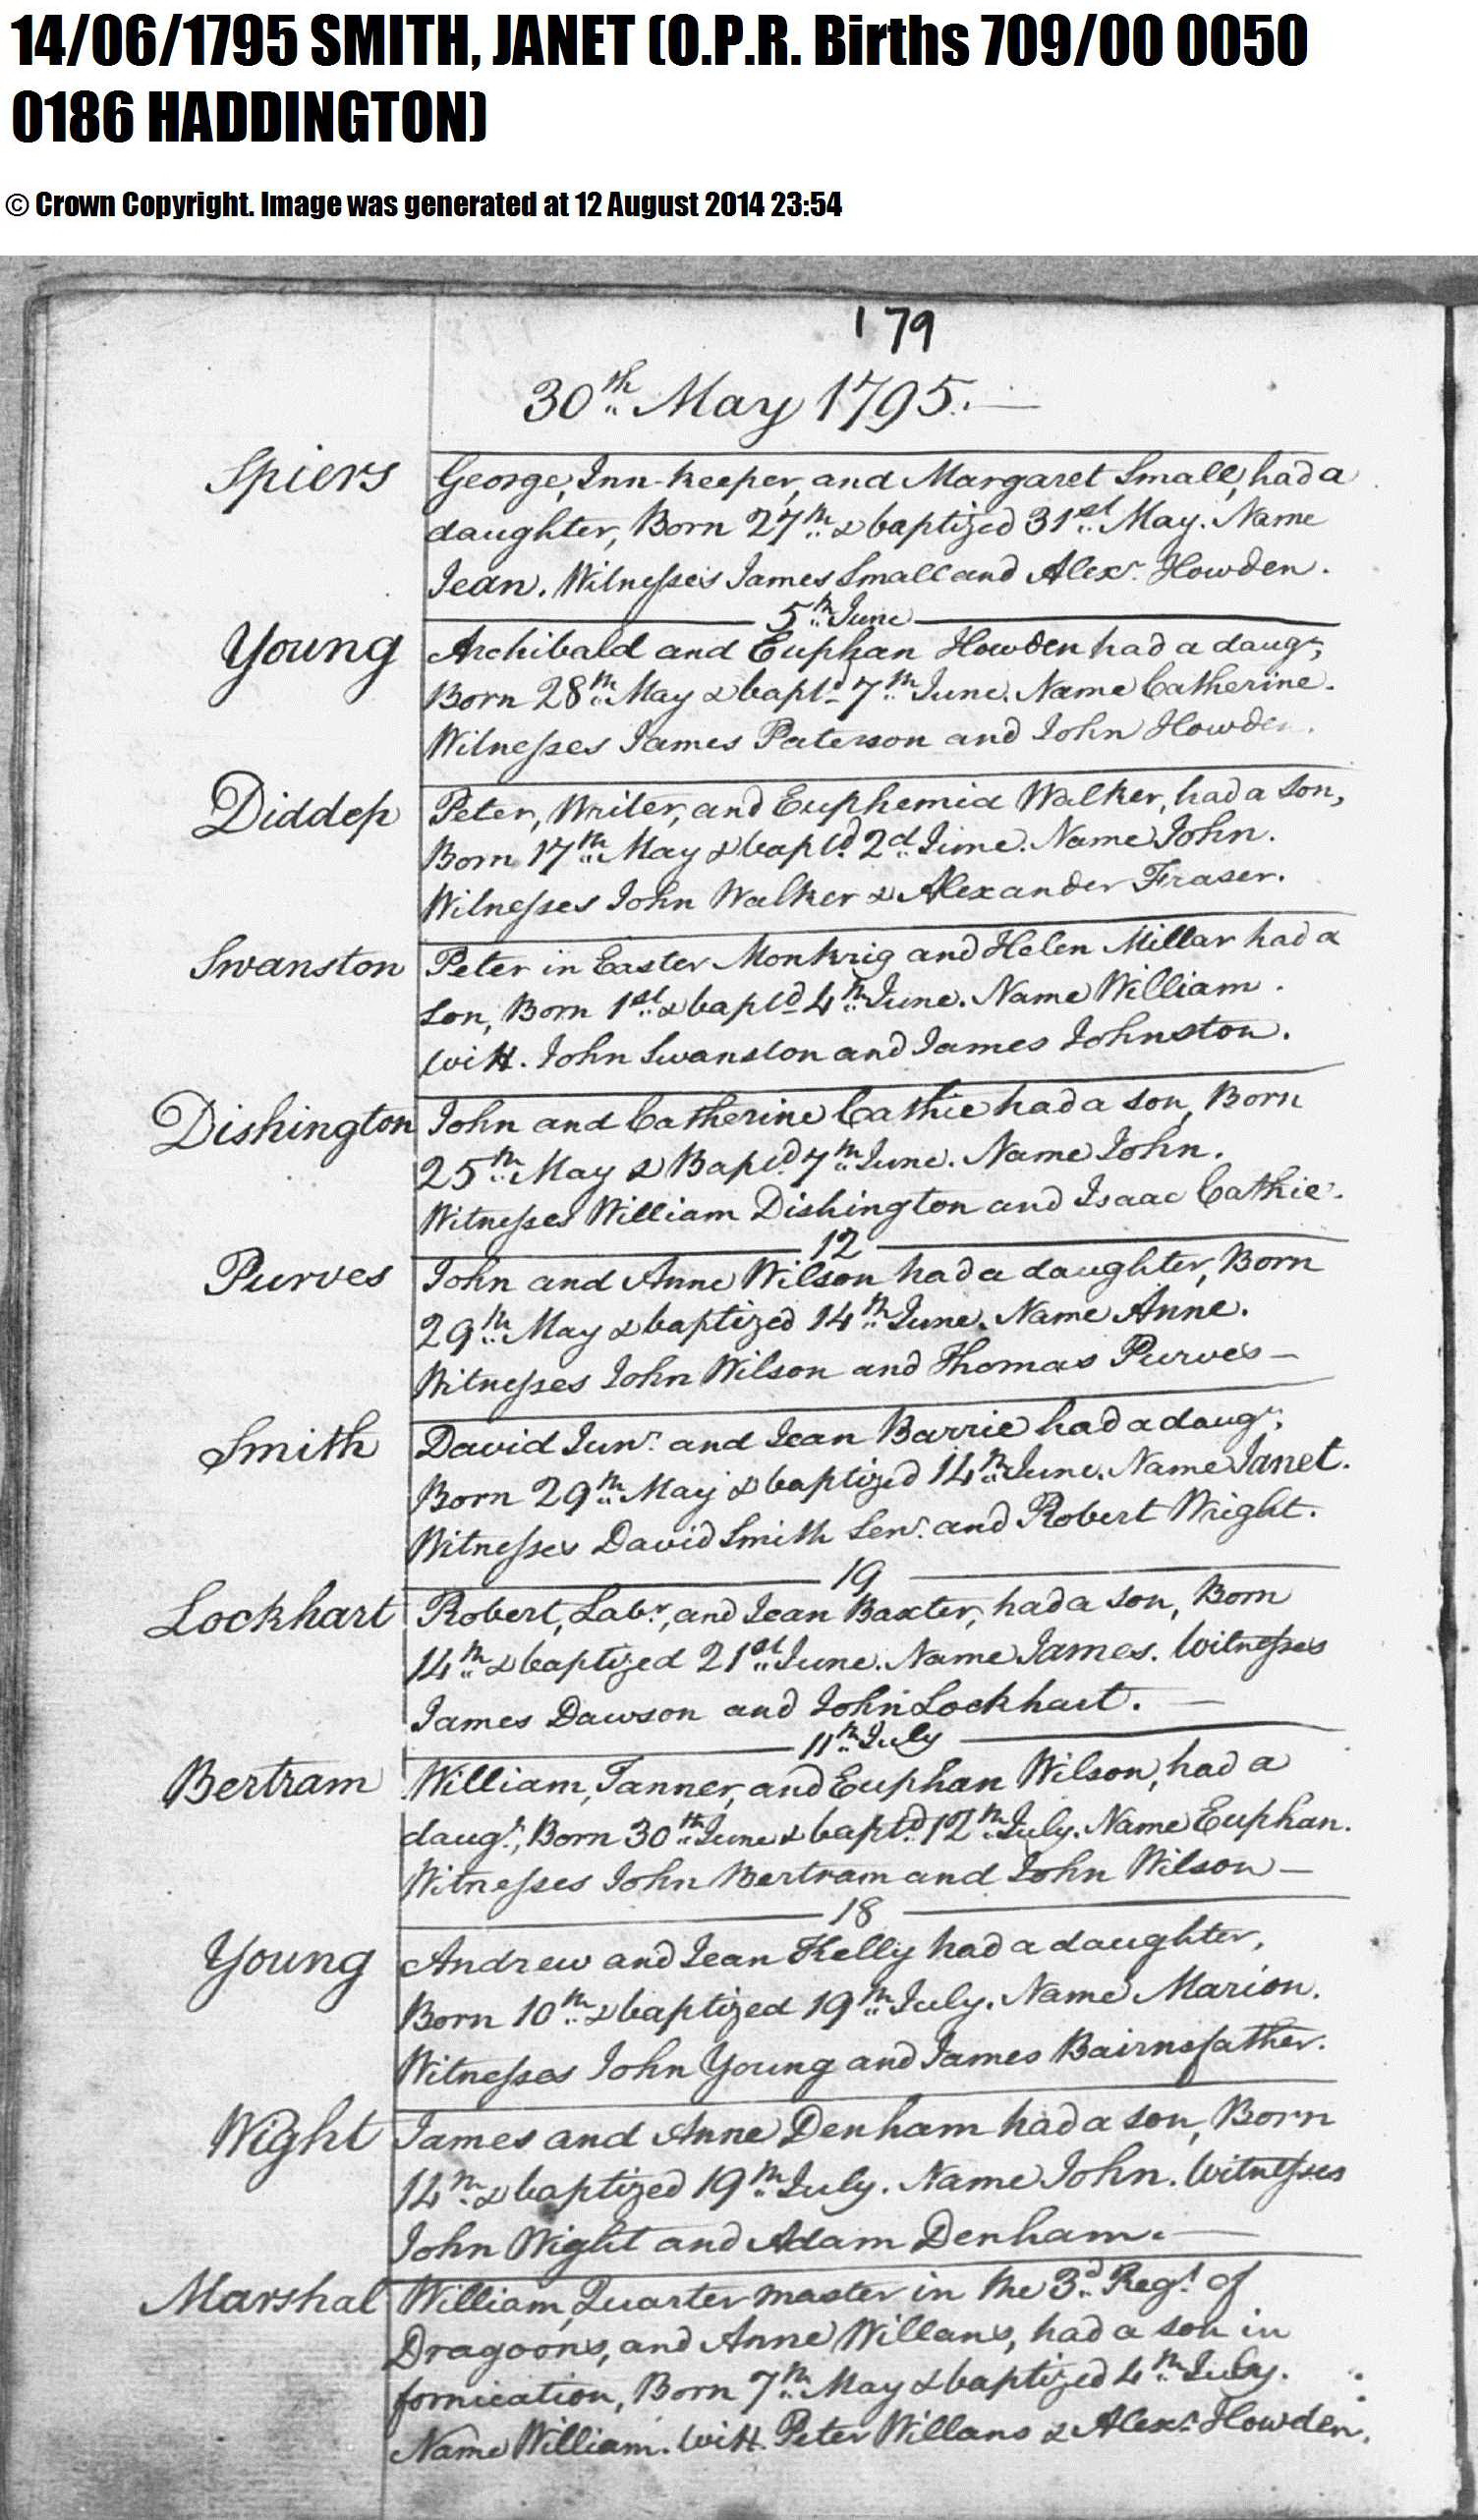 14/06/1795 SMITH, JANET (O.P.R. Births 709/00 0050
0186 HADDINGTON)
© Crown Copyright. Image was generated at 12 August 2014 23:54
179
30th May 1795.
Spiers George, Inn-keeper, and Margaret Small, had a
daughter, Born 27th & baptized 31st May. Name
Jean. Witnesses James Small and Alexr. Howden.
5th June
Young Archibald and Euphan Howden had a daugr,
Born 28th May & baptd 7th June. Name Catherine.
Witnesses James Paterson and John Howden.
Diddep Peter, Writer, and Euphemia Walker, had a son,
Born 17th May & baptd. 2d June. Name John.
Witnesses John Walker & Alexander Fraser.
Swanston Peter in Easter Monkrig and Helen Millar had a
son, Born 1st & baptd 4th June. Name William.
Witt. John Swanston and James Johnston.
Dishington John and Catherine Cathie had a son, Born
25th May & Baptd. 7th June. Name John.
Witnesses William Dishington and Isaac Cathie.
12
Purves John and Anne Wilson had a daughter, Born
29th May & baptized 14th June. Name Anne.
Witnesses John Wilson and Thomas Purves—
Smith David Junr. and Jean Barrie had a daugr,
Born 29th May & baptized 14th June. Name Janet.
Witnesses David Smith Senr. and Robert Wright.
19
Lockhart Robert, Labr, and Jean Baxter, had a son, Born
14th & baptized 21st June. Name James. Witnesses
James Dawson and John Lockhart. —
11th July
Bertram William, Tanner, and Euphan Wilson, had a
daugr, Born 30th June & baptd. 12th July. Name Euphan.
Witnesses John Bertram and John Wilson—
18
Young Andrew and Jean Kelly had a daughter,
Born 10th & baptized 19th July. Name Marion.
Witnesses John Young and James Bairnsfather.
Wight James and Anne Denham had a son, Born
14th & baptized 19th July. Name John. Witnesses
John Wight and Adam Denham. —
Marshal William, Quarter master in the 3d Regt of
Dragoons, and Anne Willans, had a son in
fornication, Born 7th May & baptized 4th July.
Name William. Witt. Peter Willans & Alexr. Howden.